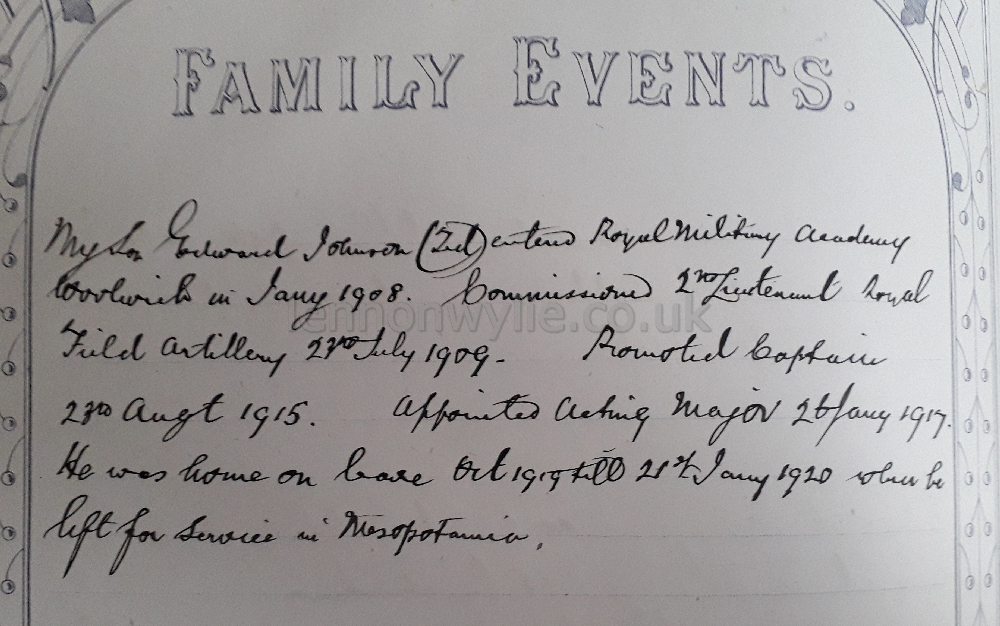 FAMILY EVENTS.
My Son Edward Johnson (Ted) entered Royal Military Academy
Woolwich in Jany 1908. Commissioned 2nd Lieutenant Royal
lennonwylie.co.uk
Field Artillery 23rd July 1909. Promoted Captain
23rd Augt 1915. Appointed Acting Major 26 Jany 1917.
He was home on leave Oct 1919 till 21st Jany 1920 when he
left for service in Mesopotamia.